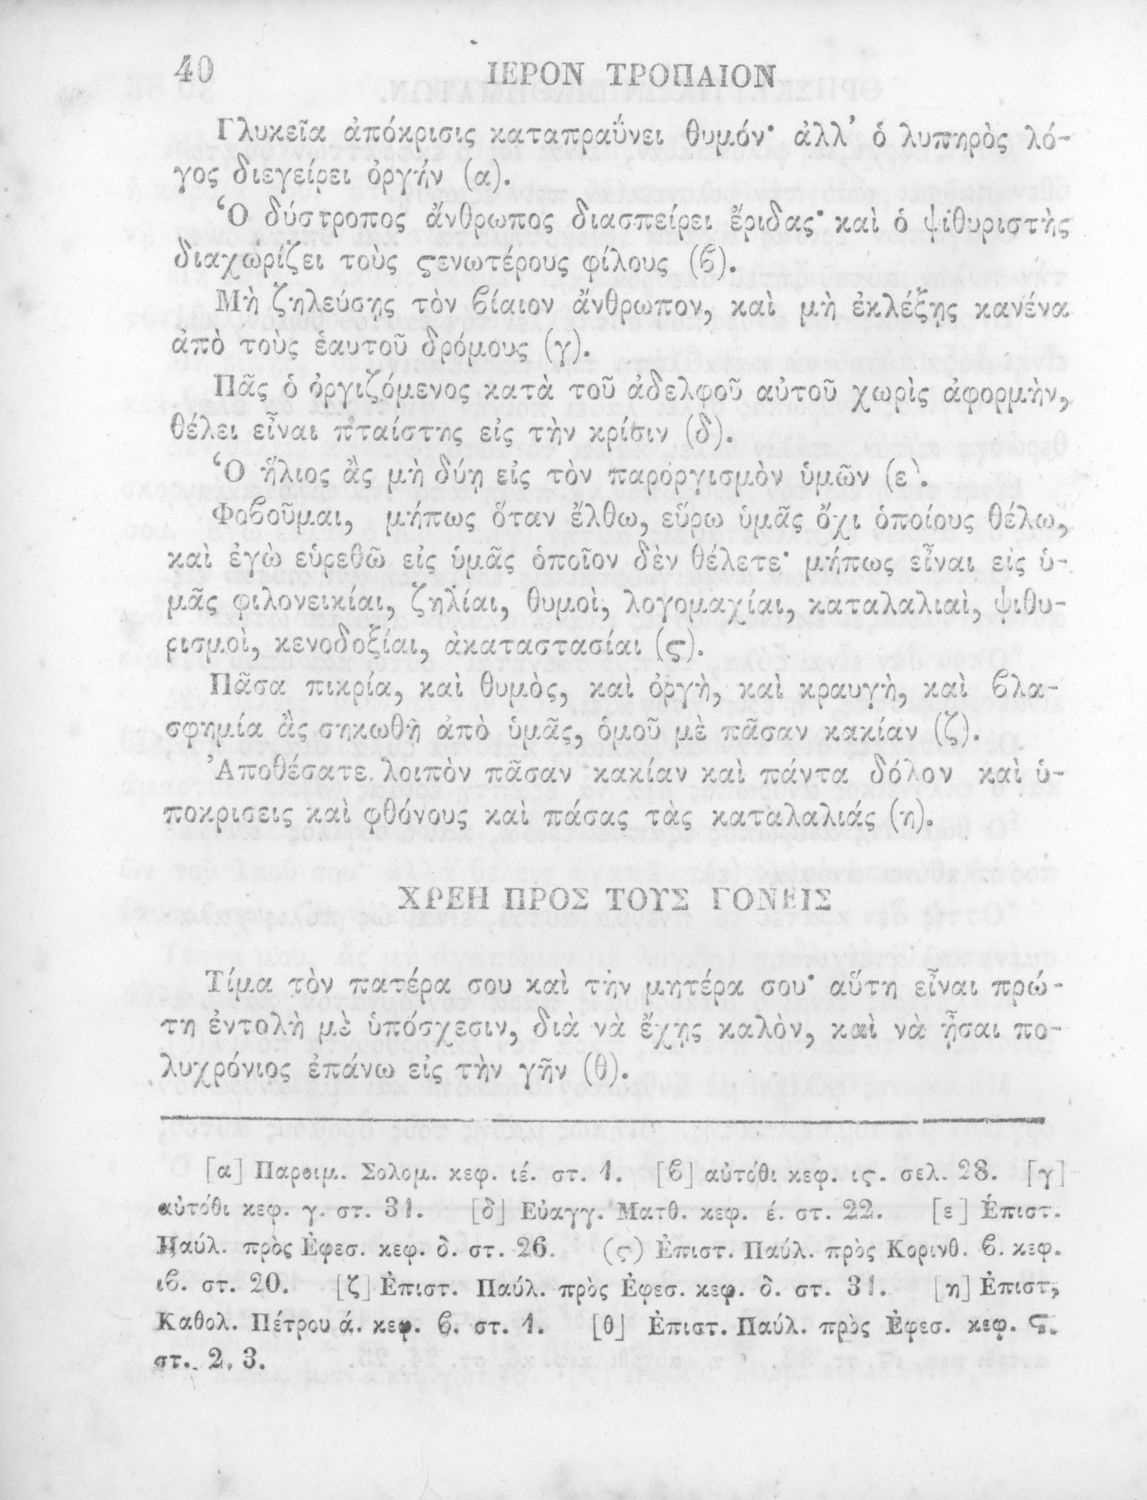 40
ΙΕΡΟΝ ΤΡΟΠΑΙΟΝ
Γλυκεῖα ἀπόκρισις καταπραΰνει θυμόν· ἀλλ' ὁ λυπηρὸς λό-
γος διεγείρει ὀργήν (α).
Ὁ δύστροπος ἄνθρωπος διασπείρει ἔριδας· καὶ ὁ ψιθυριστὴς
διαχωρίζει τοὺς ϛενωτέρους φίλους (ϐ).
Μὴ ζηλεύσῃς τὸν βίαιον ἄνθρωπον, καὶ μὴ ἐκλέξῃς κανένα
ἀπὸ τοὺς ἑαυτοῦ δρόμους (γ).
Πᾶς ὁ ὀργιζόμενος κατὰ τοῦ ἀδελφοῦ αὐτοῦ χωρὶς ἀφορμὴν,
θέλει εἶναι πταίστης εἰς τὴν κρίσιν (δ).
Ὁ ἥλιος ἂς μὴ δύῃ εἰς τὸν παροργισμὸν ὑμῶν (ε).
Φοϐοῦμαι, μήπως ὅταν ἔλθω, εὕρω ὑμᾶς ὄχι ὁποίους θέλω,
καὶ ἐγὼ εὑρεθῶ εἰς ὑμᾶς ὁποῖον δὲν θέλετε· μήπως εἶναι εἰς ὑ-
μᾶς φιλονεικίαι, ζηλίαι, θυμοὶ, λογομαχίαι, καταλαλιαὶ, ψιθυ-
ρισμοὶ, κενοδοξίαι, ἀκαταστασίαι (ϛ).
Πᾶσα πικρία, καὶ θυμὸς, καὶ ὀργὴ, καὶ κραυγὴ, καὶ ϐλα-
σφημία ἂς σηκωθῇ ἀπὸ ὑμᾶς, ὁμοῦ μὲ πᾶσαν κακίαν (ζ).
Ἀποθέσατε λοιπὸν πᾶσαν κακίαν καὶ πάντα δόλον καὶ ὑ-
ποκρισεις καὶ φθόνους καὶ πάσας τὰς καταλαλιάς (η).
ΧΡΕΗ ΠΡΟΣ ΤΟΥΣ ΓΟΝΕΙΣ
Τίμα τὸν πατέρα σου καὶ τὴν μητέρα σου· αὕτη εἶναι πρώ-
τη ἐντολὴ μὲ ὑπόσχεσιν, διὰ νὰ ἔχῃς καλὸν, καὶ νὰ ἦσαι πο-
λυχρόνιος ἐπάνω εἰς τὴν γῆν (θ).
[α] Παροιμ. Σολομ. κεφ. ιέ. στ. 1. [ϐ] αὐτόθι κεφ. ιϛ. σελ. 28. [γ]
αὐτόθι κεφ. γ. στ. 31. [δ] Εὐαγγ. Ματθ. κεφ. έ. στ. 22. [ε] Ἐπιστ.
Παύλ. πρὸς Ἐφεσ. κεφ. δ. στ. 26. (ϛ) Ἐπιστ. Παύλ. πρὸς Κορινθ. ϐ. κεφ.
ιϐ. στ. 20. [ζ] Ἐπιστ. Παύλ. πρὸς Ἐφεσ. κεφ. δ. στ. 31. [η] Ἐπιστ,
Καθολ. Πέτρου ά. κεφ. ϐ. στ. 1. [θ] Ἐπιστ. Παύλ. πρὸς Ἐφεσ. κεφ. ϛ.
στ. 2, 3.